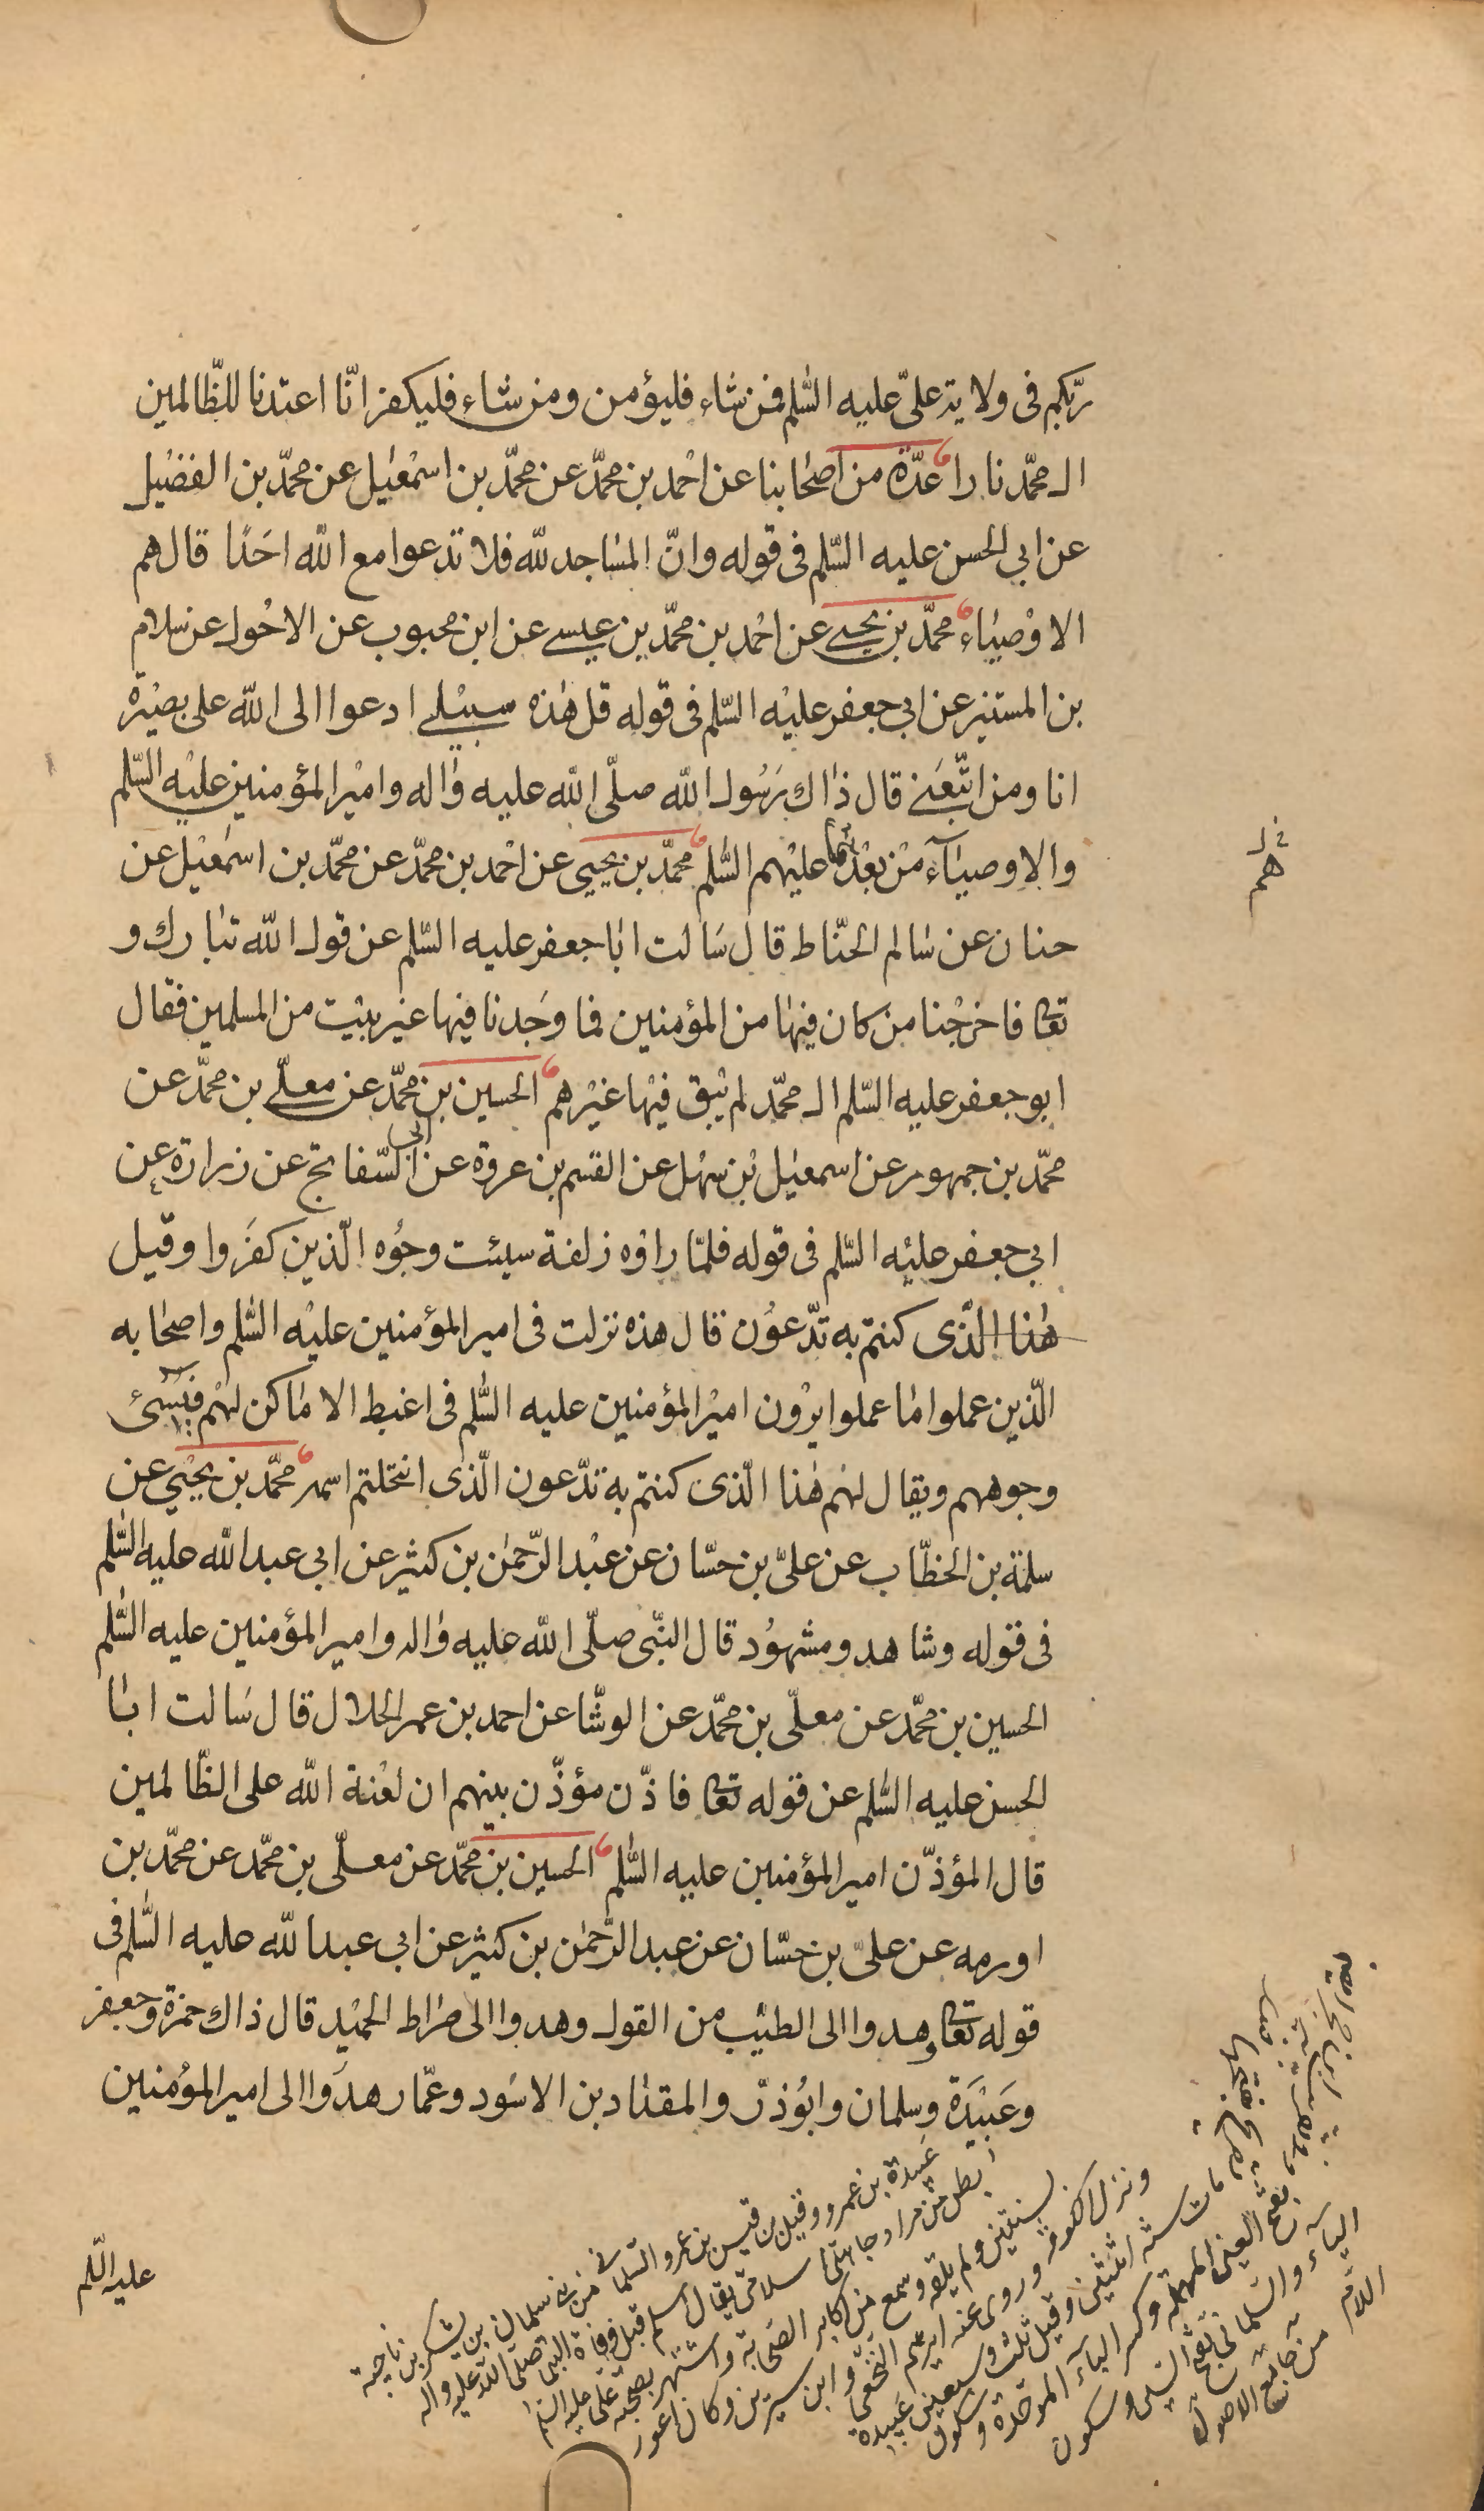 ربّكم فى ولاية علىّ عليه السّلم فمن شاء فليؤمن ومن شاء فليكفر انّا اعتدنا للظّالمين
ال محمّد نارا عدّة من اصحابنا عن احمد بن محمّد عن محمّد بن اسمعيل عن محمّد بن الفضيل
عن ابي الحسن عليه السّلم فى قوله وانّ المساجد للّه فلا تدعوا مع اللّه احدًا قال هم
الاوصياء محمّد بن يحيى عن احمد بن محمّد بن عيسى عن ابن محبوب عن الاحول عن سلام
بن المستنير عن ابي جعفر عليه السّلم فى قوله قل هذه سبيلى ادعوا الى اللّه على بصيرة
انا ومن اتّبعنى قال ذاك رسول اللّه صلّى اللّه عليه واله وامير المؤمنين عليه السّلم
والاوصيآء من بعدهما عليهم السّلم محمّد بن يحيى عن احمد بن محمّد عن محمّد بن اسمعيل عن
حنان عن سالم الحنّاط قال سالت ابا جعفر عليه السّلم عن قول اللّه تبارك و
تعا فاخرجنا من كان فيها من المؤمنين فما وجدنا فيها غير بيت من المسلمين فقال
ابو جعفر عليه السّلم ال محمّد لم يبق فيها غيرهم الحسين بن محمّد عن معلّى بن محمّد عن
محمّد بن جمهور عن اسمعيل بن سهل عن القسم بن عروة عن ابى السّفاتج عن زرارة عن
ابي جعفر عليه السّلم فى قوله فلمّا راوه زلفة سيئت وجوه الّذين كفروا وقيل
هذا الّذى كنتم به تدّعون قال هذه نزلت فى امير المؤمنين عليه السّلم واصحابه
الّذين عملوا ما عملوا يرون امير المؤمنين عليه السّلم فى اغبط الاماكن لهم فيسئ
وجوههم ويقال لهم هذا الّذى كنتم به تدّعون الّذى انتحلتم اسمه محمّد بن يحيى عن
سلمة بن الخطّاب عن علىّ بن حسّان عن عبد الرّحمن بن كثير عن ابي عبد اللّه عليه السّلم
فى قوله وشاهد ومشهود قال النّبى صلّى اللّه عليه واله وامير المؤمنين عليه السّلم
الحسين بن محمّد عن معلّى بن محمّد عن الوشّا عن احمد بن عمر الحلال قال سالت ابا
الحسن عليه السّلم عن قوله تعا فاذّن مؤذّن بينهم ان لعنة اللّه على الظّالمين
قال المؤذّن امير المؤمنين عليه السّلم الحسين بن محمّد عن معلّى بن محمّد عن محمّد بن
اورمه عن علىّ بن حسّان عن عبد الرّحمن بن كثير عن ابي عبد اللّه عليه السّلم فى
قوله تعا وهدوا الى الطيّب من القول وهدوا الى صراط الحميد قال ذاك حمزة وجعفر
وعبيدة وسلمان وابوذرّ والمقداد بن الاسود وعمّار هدوا الى امير المؤمنين
عليه السّلم
هم
عبيدة بن عمرو وقيل بن قيس بن عمرو السّلمانى من بنى سلمان بن يشكر بن ناجية
بطن من مراد جاهلىّ اسلامىّ يقال اسلم قبل وفاة النبى صلى اللّه عليه واله
بسنتين ولم يلقه وسمع من اكابر الصّحابة واشتهر بصحبة على عليه السّلم
ونزل الكوفة وروى عنه ابرهيم النّخعى وابن سيرين وكان اعور
مات سنة اثنتين وقيل ثلث وسبعين عبيدة
بفتح العين المهملة وكسر البآء الموحّدة وسكون
اليآء والسّلمانى بفتح السّين وسكون
اللّام من جامع الاصول